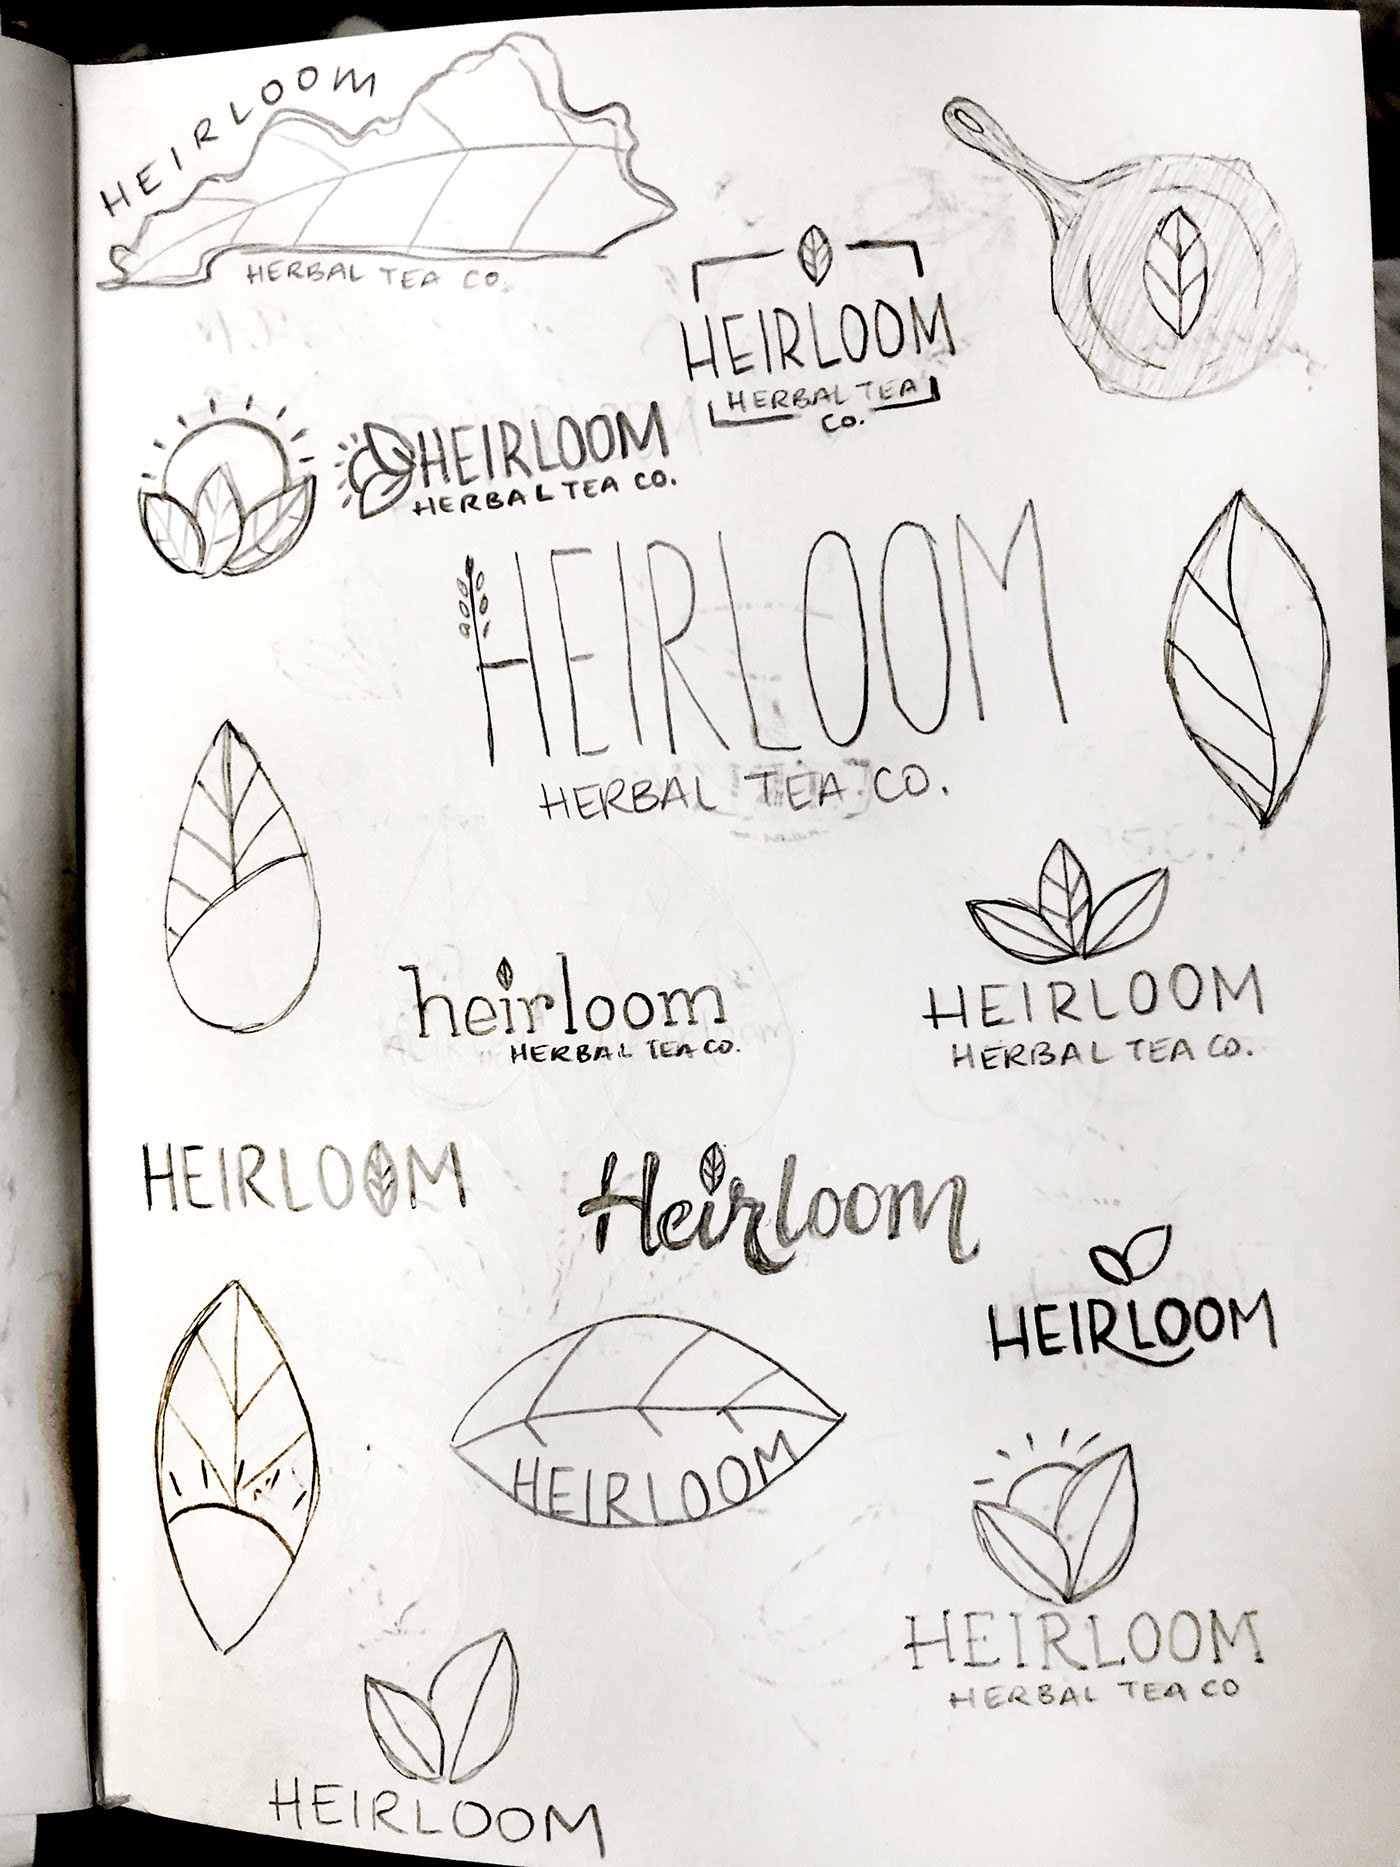 HEIRLOOM
HERBAL TEA CO.
HEIRLOOM
HERBAL TEA
CO.
HEIRLOOM
HERBAL TEA CO.
HEIRLOOM
HERBAL TEA CO.
heirloom
HERBAL TEA CO.
HEIRLOOM
HERBAL TEA CO.
HEIRLOOM
Heirloom
HEIRLOOM
HEIRLOOM
HEIRLOOM
HERBAL TEA CO
HEIRLOOM